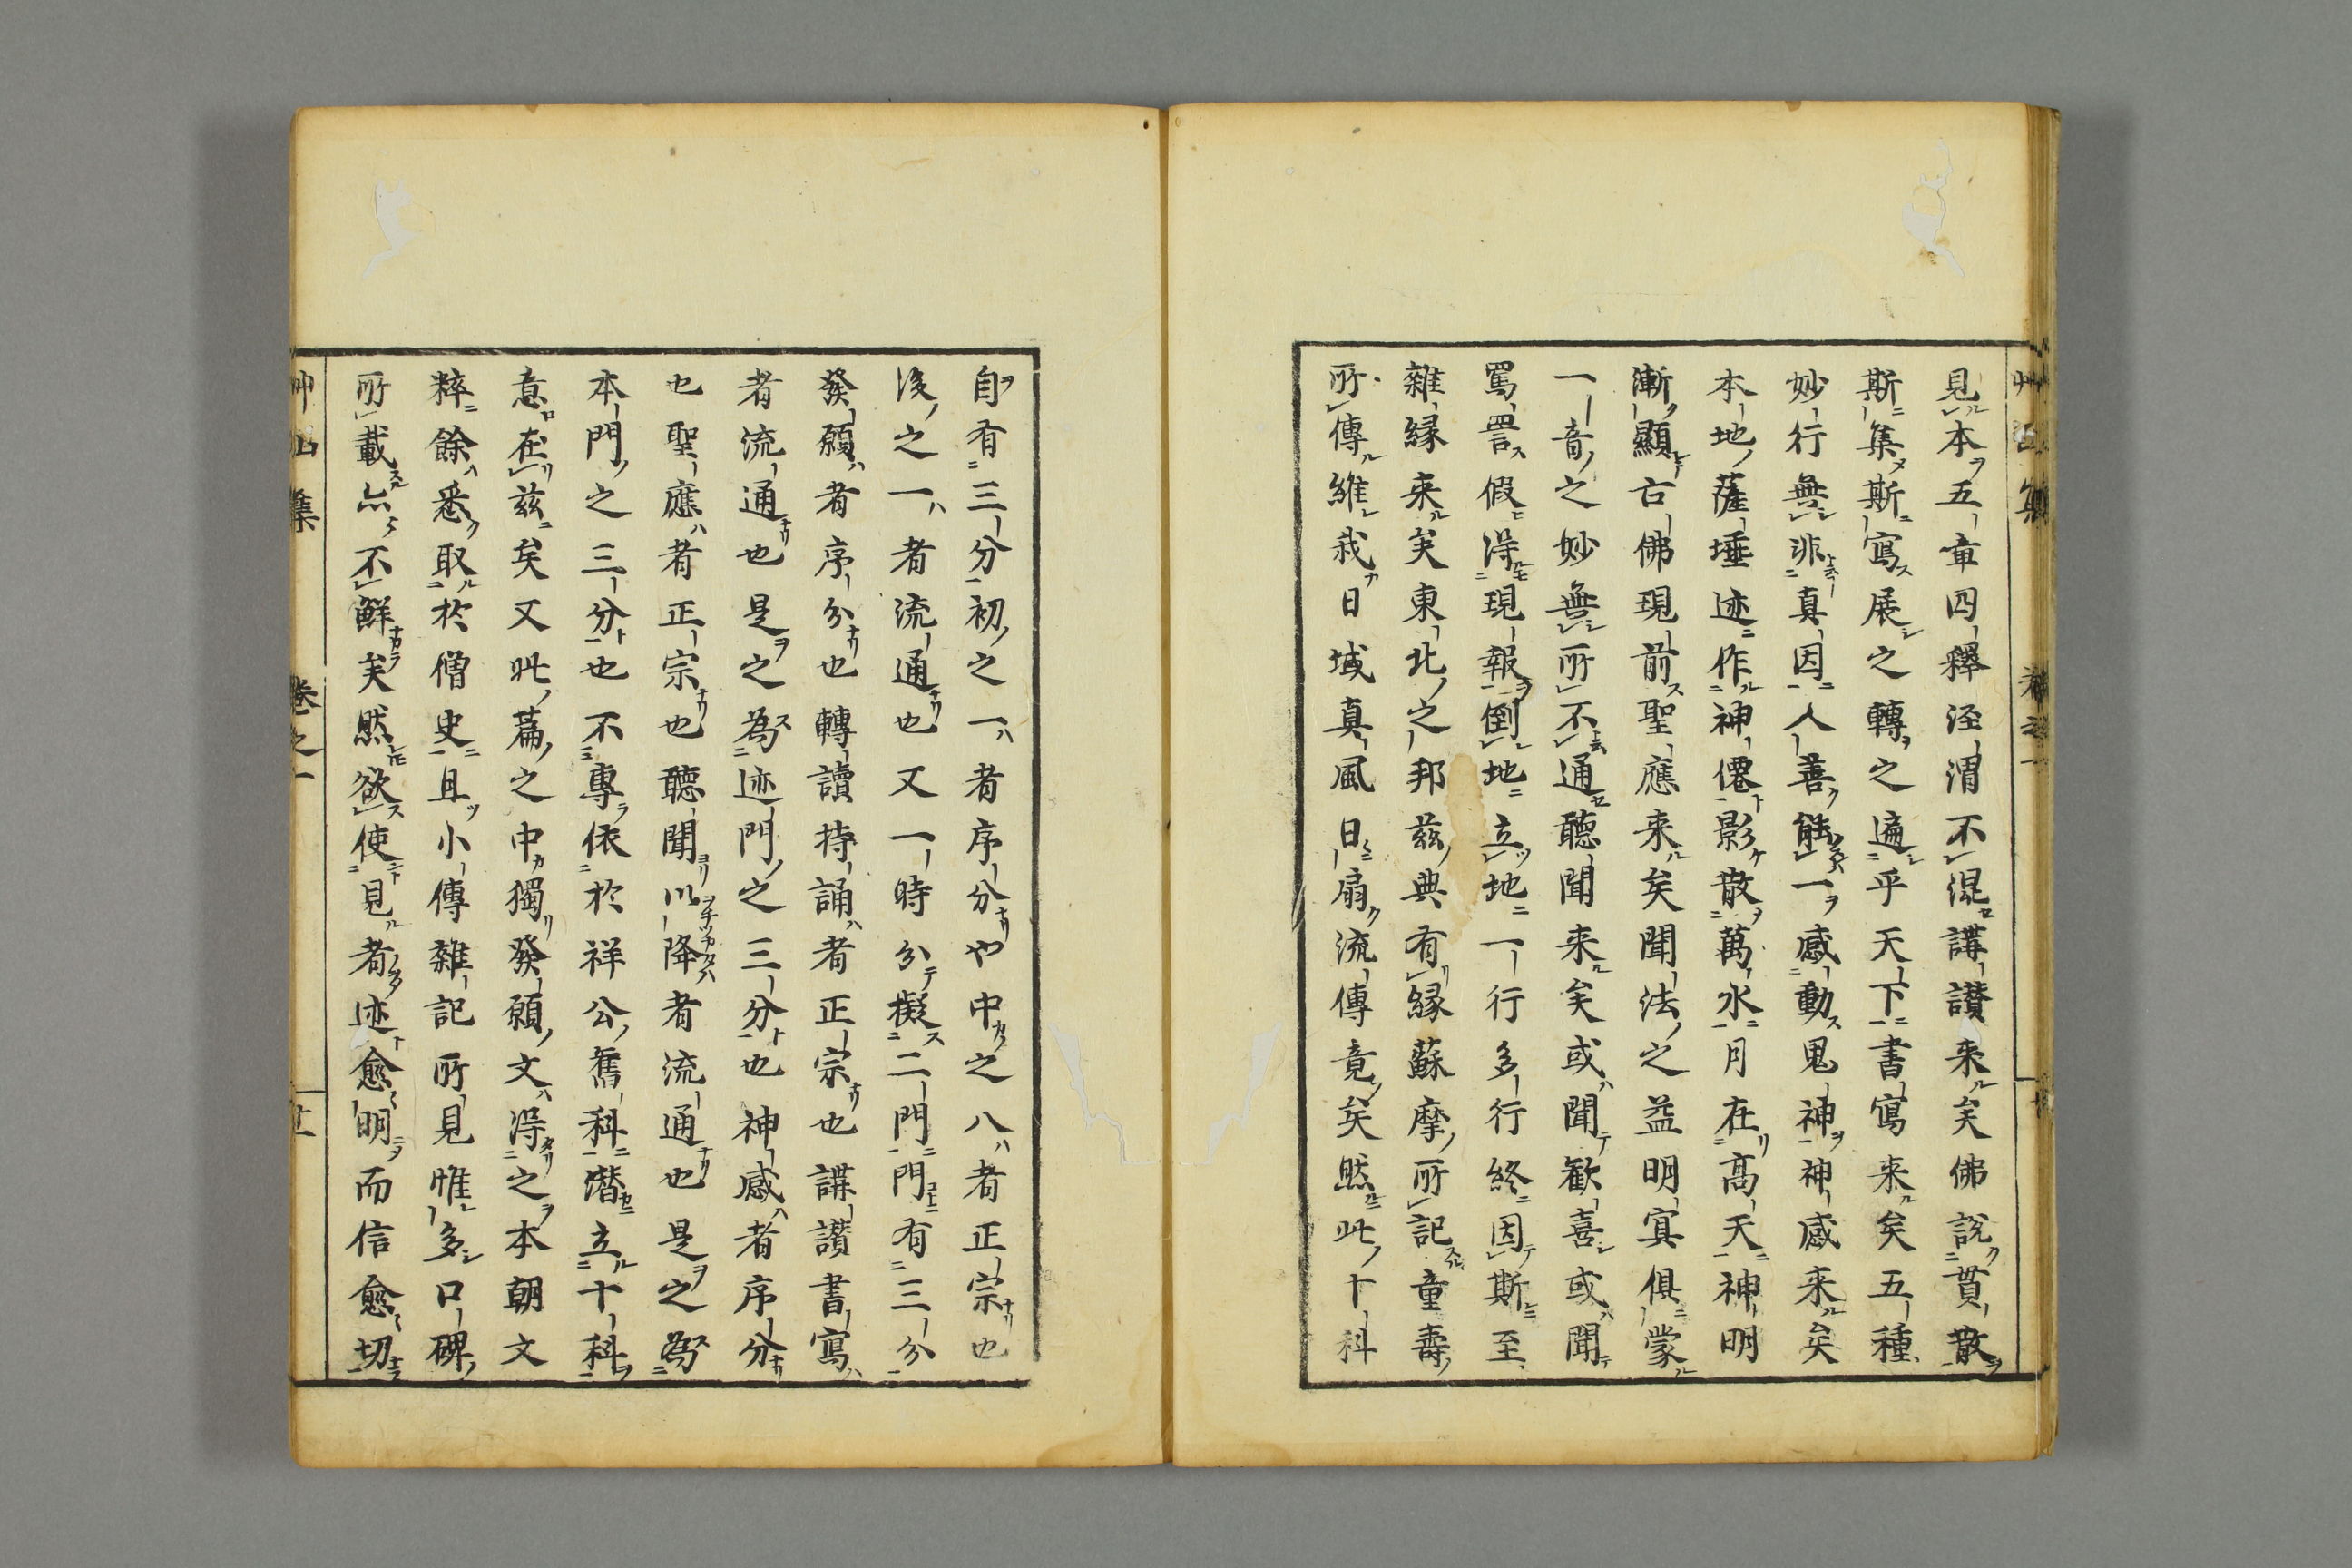 見本五章四釋涇渭不混講讃来矣佛説貫散
斯集斯寫展之轉之遍乎天下書寫来矣五種
妙行無非真因人善能一感動鬼神神感来矣
本地薩埵迹作神僊影散萬水月在高天神明
漸顯古佛現前聖應来矣聞法之益明寘俱蒙
一音之妙無所不通聴聞来矣或聞歓喜或聞
罵詈假淂現報倒地立地一行多行終因斯至
雜縁来矣東北之邦兹典有縁蘇摩所記童壽
所傳維我日域真風日扇流傳竟矣然此十科
自有三分初之一者序分也中之八者正宗也
後之一者流通也又一時分擬二門門有三分
發願者序分也轉讀持誦者正宗也講讃書寫
者流通也是之為迹門之三分也神感者序分
也聖應者正宗也聴聞以降者流通也是之為
本門之三分也不專依於祥公舊科潜立十科
意在兹矣又此篇之中獨發願文淂之本朝文
粹餘悉取於僧史且小傳雜記所見惟多口碑
所載亦不鮮矣然欲使見者迹愈明而信愈切
艸山集 卷之一